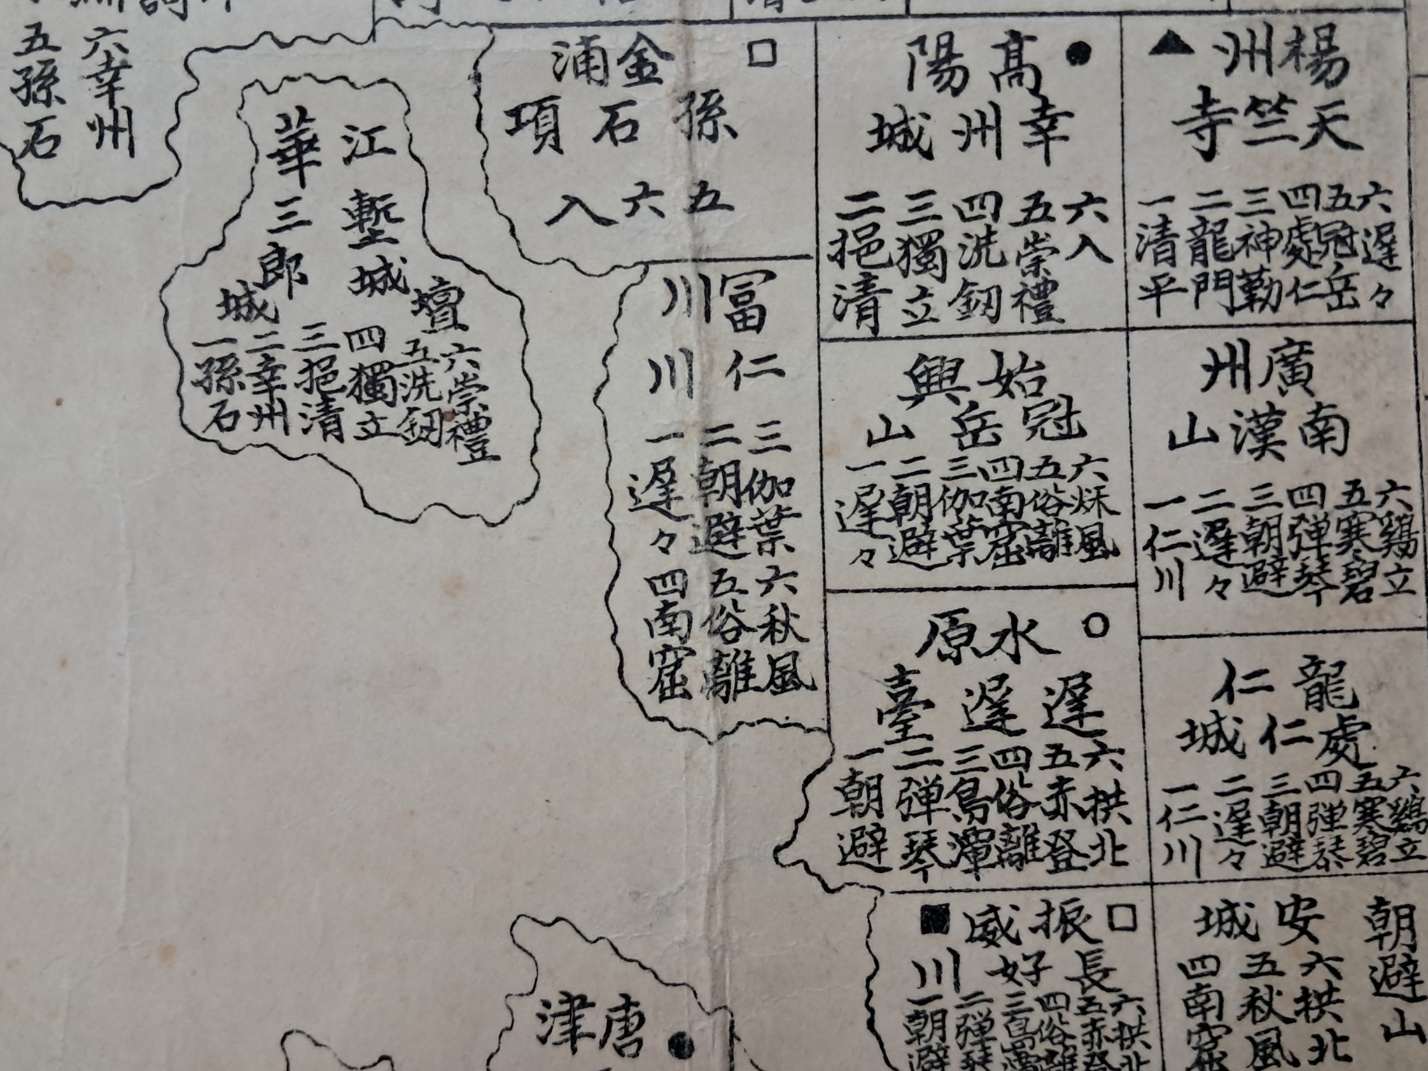 楊州
天竺寺
一清平
二龍門
三神勤
四處仁
五冠岳
六遅々
高陽
幸州城
二挹清
三獨立
四洗釼
五崇禮
六入
金浦
孫石項
五六入
六幸州
五孫石
江華
塹城壇
三郎城
一孫石
二幸州
三挹清
四獨立
五洗釼
六崇禮
冨川
仁川
一遅々
二朝避
三伽葉
四南窟
五俗離
六秋風
始興
冠岳山
一遅々
二朝避
三伽葉
四南窟
五俗離
六秌風
廣州
南漢山
一仁川
二遅々
三朝避
四弾琴
五寒碧
六鷄立
水原
遅遅臺
一朝避
二弾琴
三鳥潭
四俗離
五赤登
六拱北
龍仁
處仁城
一仁川
二遅々
三朝避
四弾琴
五寒碧
六鷄立
振威
長好川
一朝避
二弾琴
三鳥
四俗離
五赤登
六拱北
安城
朝避山
四南窟
五秋風
六拱北
唐津